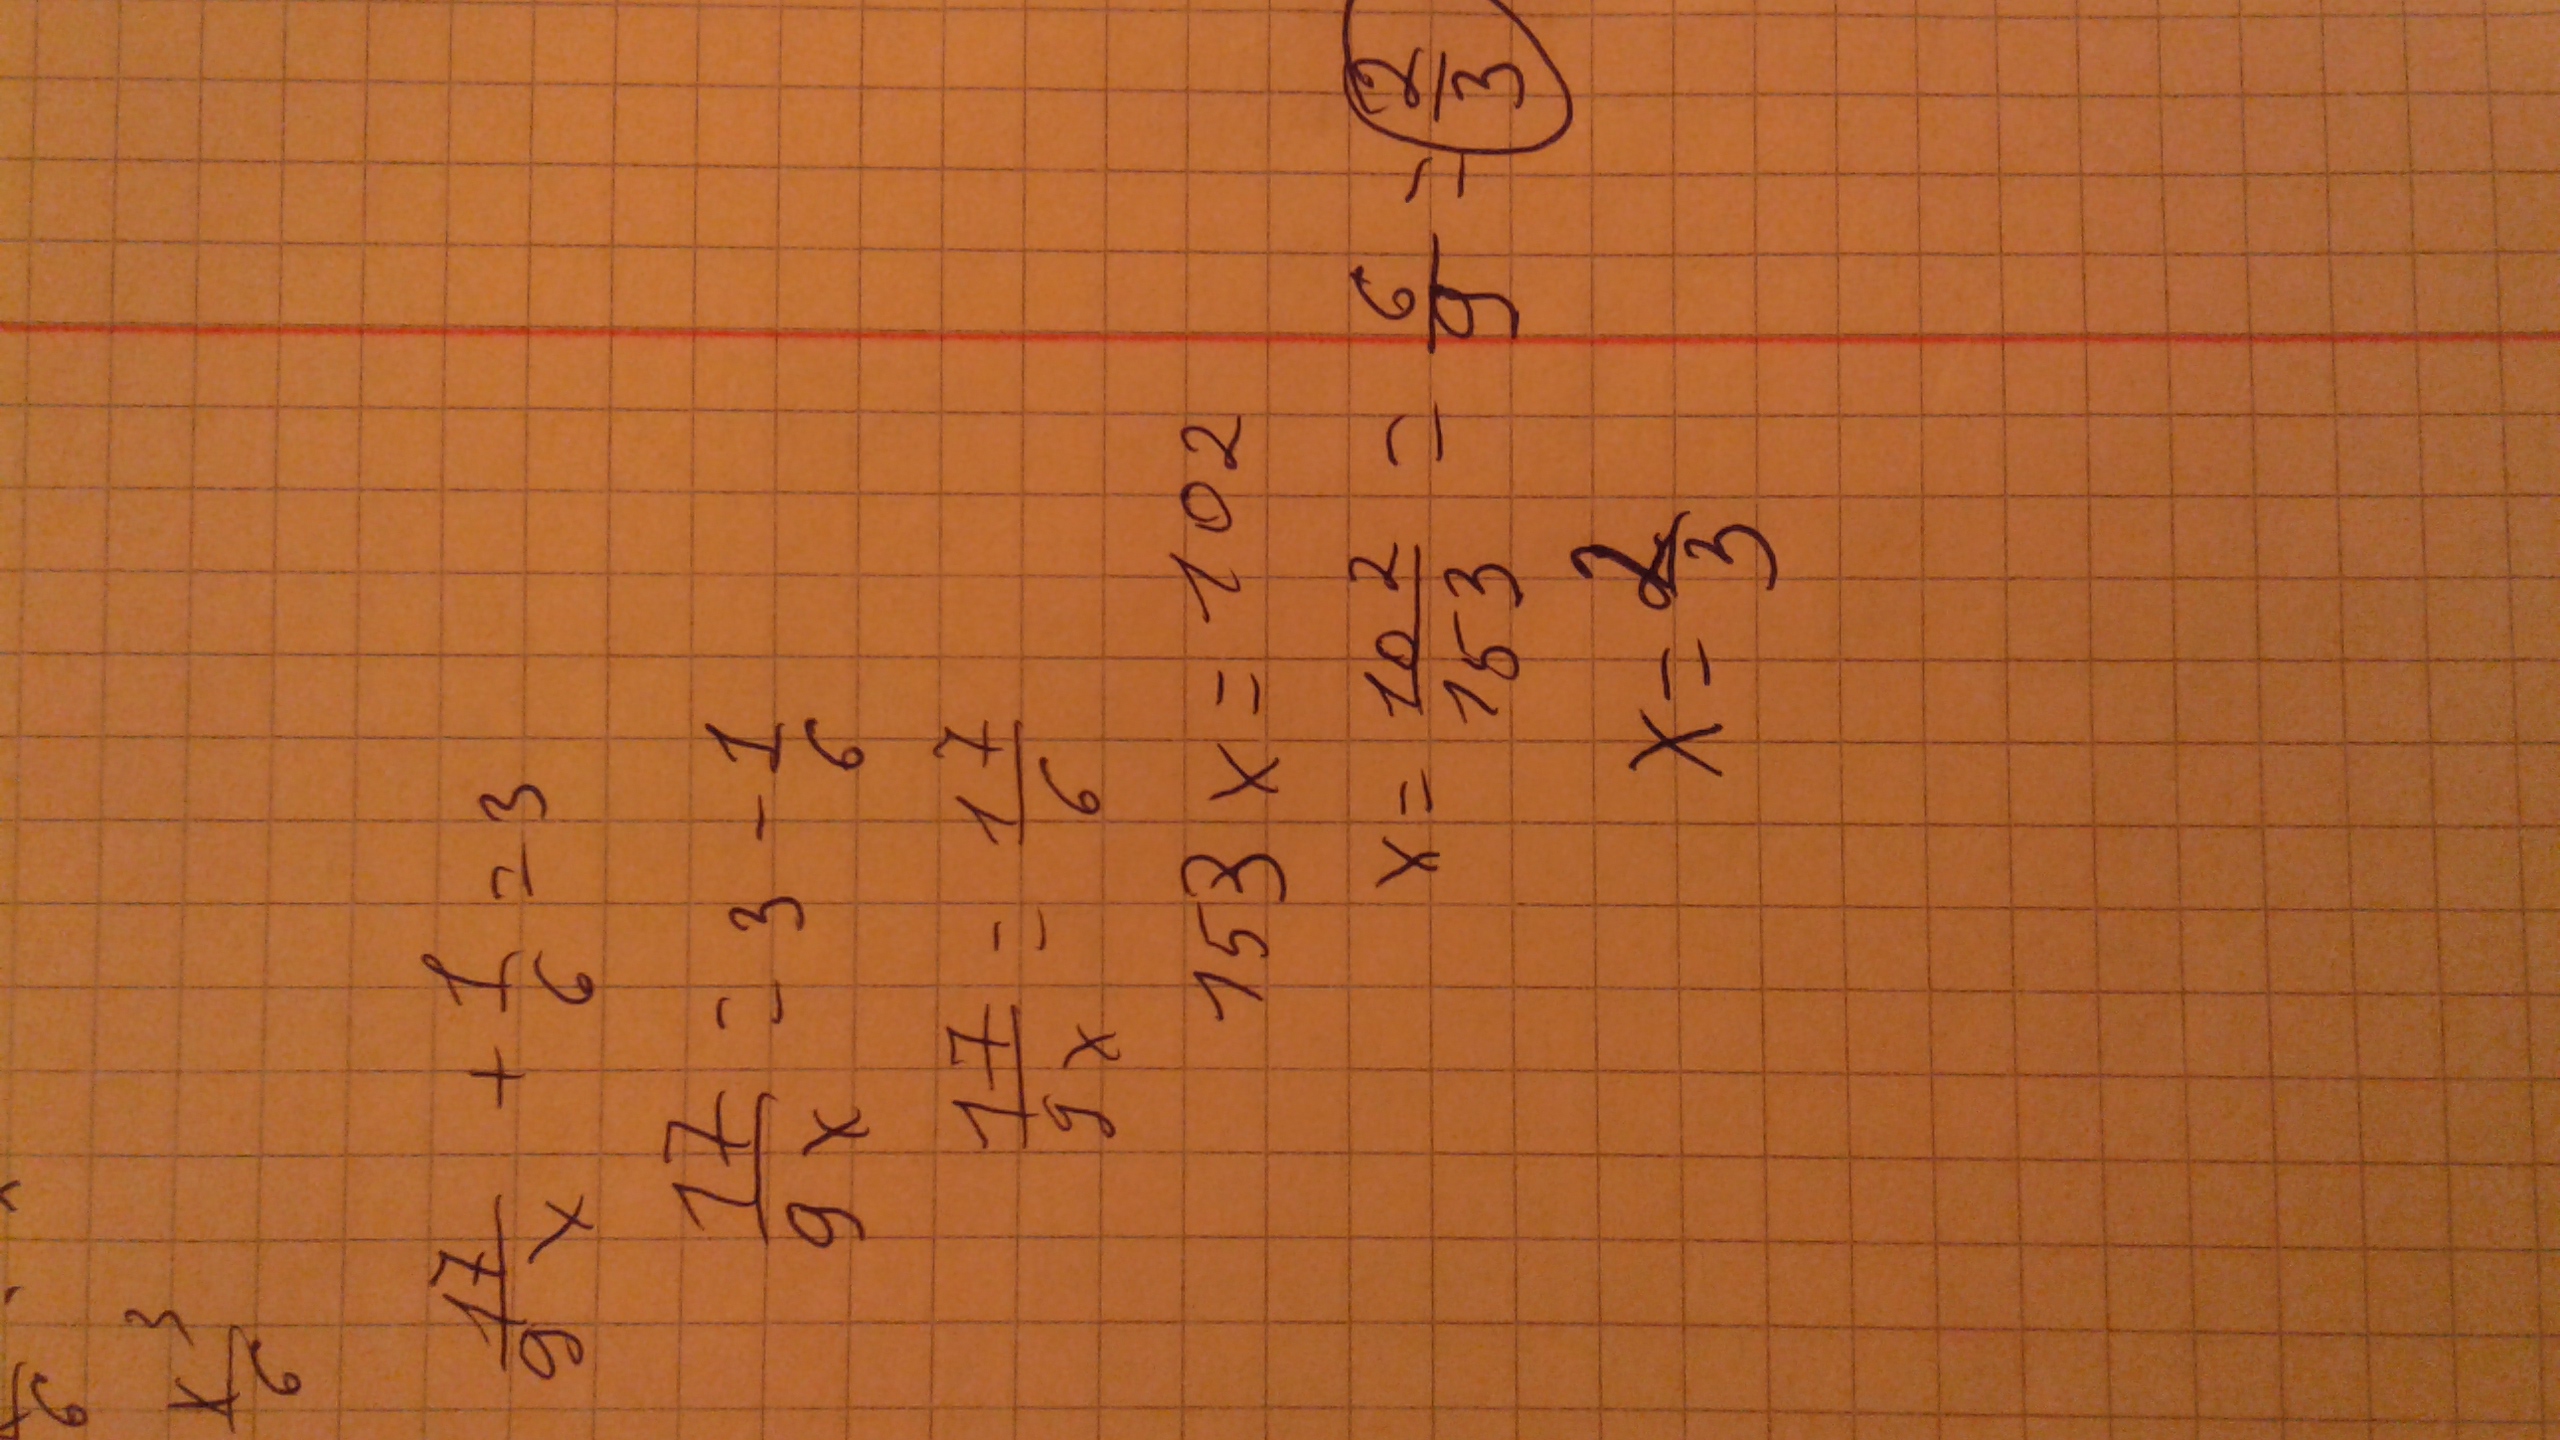 x³/6
17/9x + 1/6 = 3
17/9x = 3 - 1/6
17/9x = 17/6
153x = 102
x = 102/153 = 6/9 = 2/3
x = 2/3